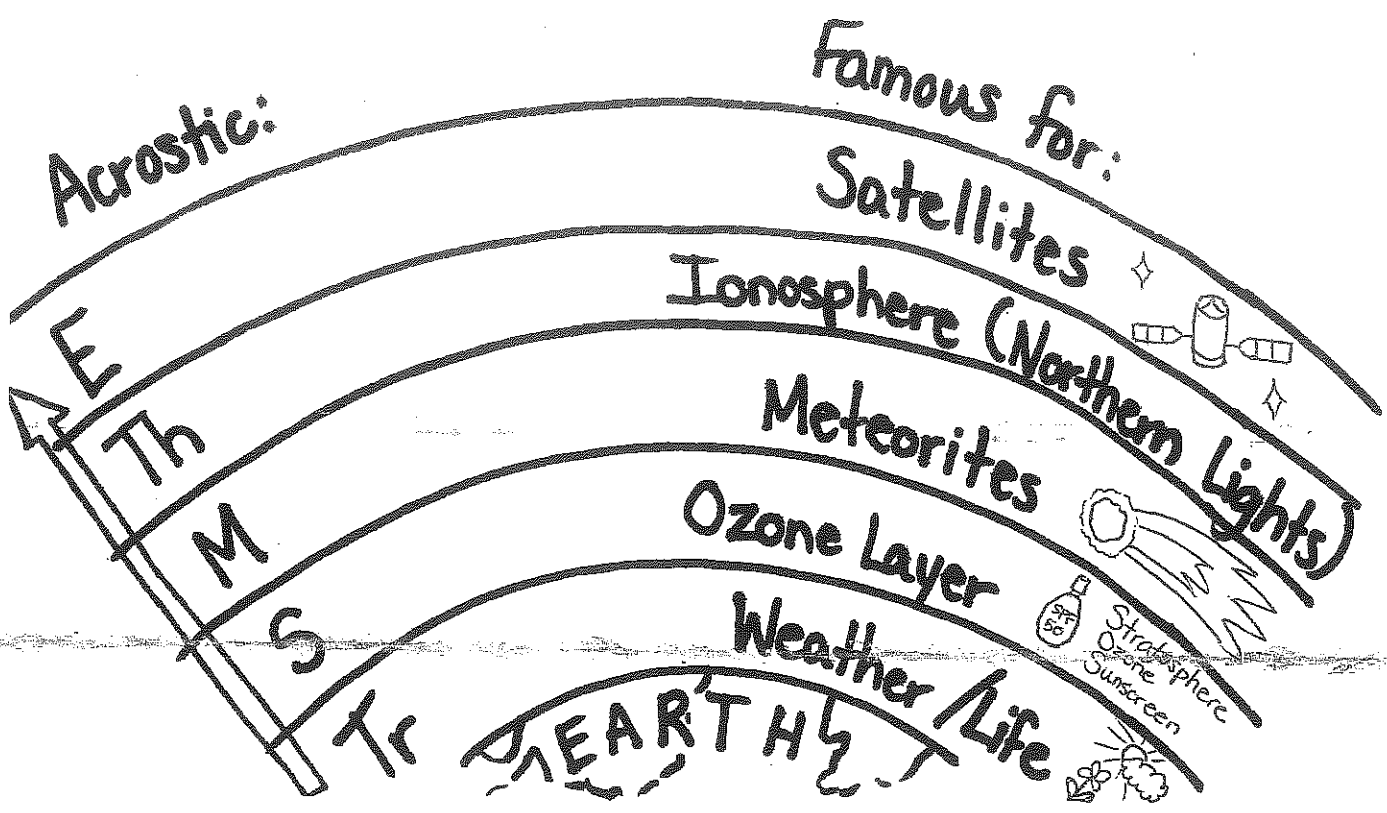 Acrostic:
Famous for:
E
Satellites
Th
Ionosphere (Northern Lights)
M
Meteorites
S
Ozone Layer
SPF
50
Stratosphere
Ozone
Sunscreen
Tr
Weather/Life
EARTH